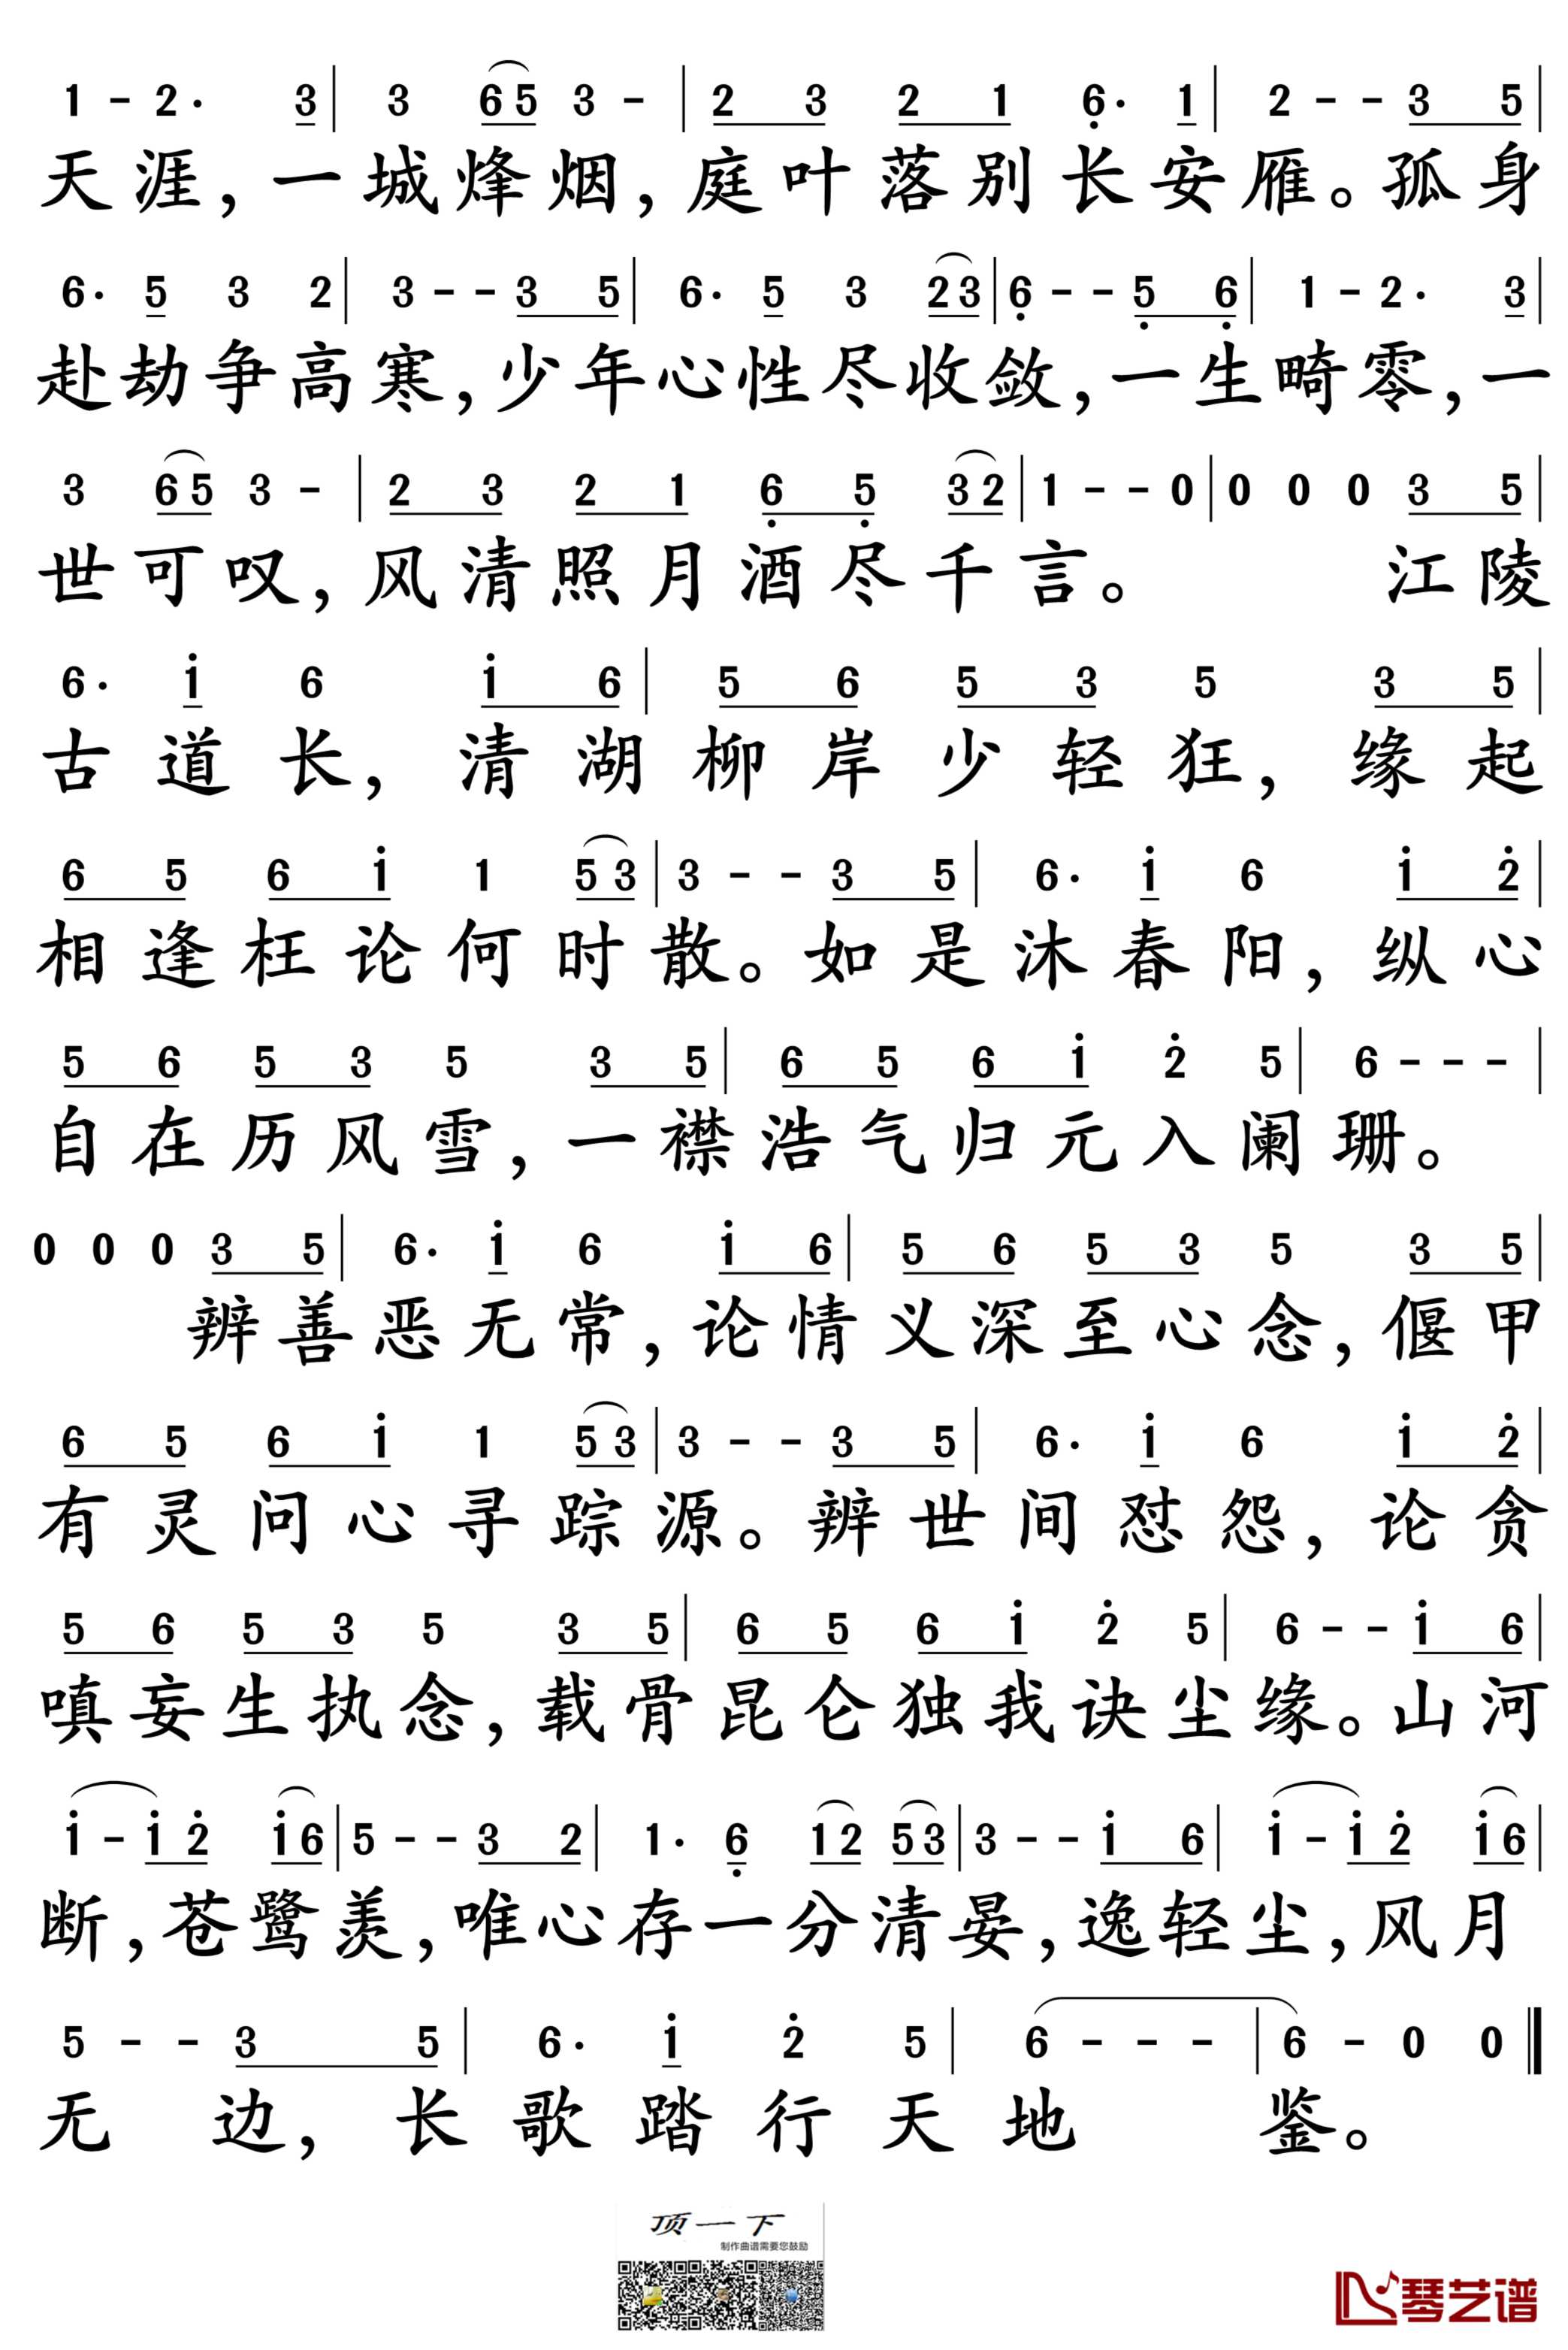 1 - 2· 3 | 3 6 5 3 - | 2 3 2 1 6̣· 1 | 2 - - 3 5 |
天涯，一城烽烟，庭叶落别长安雁。孤身
6· 5 3 2 | 3 - - 3 5 | 6· 5 3 2 3 | 6̣ - - 5̣ 6̣ | 1 - 2· 3 |
赴劫争高寒，少年心性尽收敛，一生畸零，一
3 6 5 3 - | 2 3 2 1 6̣ 5̣ 3 2 | 1 - - 0 | 0 0 0 3 5 |
世可叹，风清照月酒尽千言。 江陵
6· i 6 i 6 | 5 6 5 3 5 3 5 |
古道长，清湖柳岸少轻狂，缘起
6 5 6 i 1 5 3 | 3 - - 3 5 | 6· i 6 i 2̇ |
相逢枉论何时散。如是沐春阳，纵心
5 6 5 3 5 3 5 | 6 5 6 i 2̇ 5 | 6 - - - |
自在历风雪，一襟浩气归元入阑珊。
0 0 0 3 5 | 6· i 6 i 6 | 5 6 5 3 5 3 5 |
辨善恶无常，论情义深至心念，偃甲
6 5 6 i 1 5 3 | 3 - - 3 5 | 6· i 6 i 2̇ |
有灵问心寻踪源。辨世间怼怨，论贪
5 6 5 3 5 3 5 | 6 5 6 i 2̇ 5 | 6 - - i 6 |
嗔妄生执念，载骨昆仑独我诀尘缘。山河
i - i 2̇ i 6 | 5 - - 3 2 | 1· 6̣ 1 2 5 3 | 3 - - i 6 | i - i 2̇ i 6 |
断，苍鹭羡，唯心存一分清晏，逸轻尘，风月
5 - - 3 5 | 6· i 2̇ 5 | 6 - - - | 6 - 0 0 ‖
无边，长歌踏行天地 鉴。
顶一下
制作曲谱需要您鼓励
琴艺谱